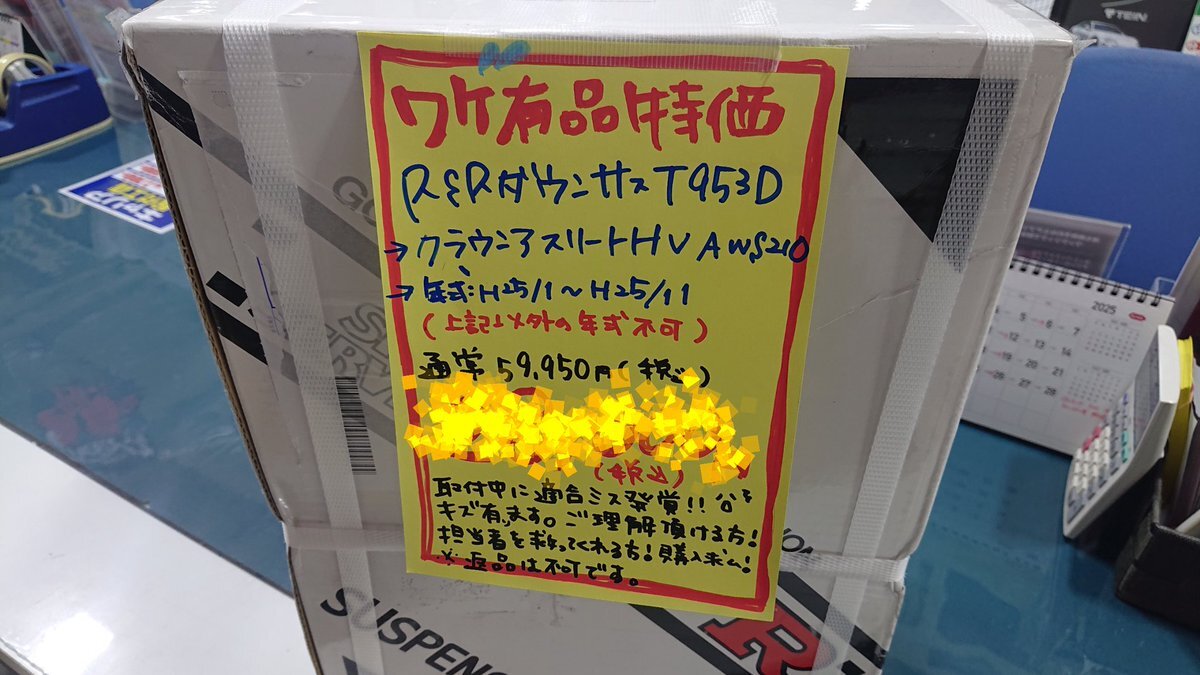 ワケ有品特価
RSRダウンサス T953D
→クラウンアスリートHV AWS210
→年式:H25/1～H25/11
(上記以外の年式不可)
通常 59,950円(税込)
(税込)
取付中に適合ミス発覚!! 少々
キズ有ります。ご理解頂ける方!
担当者を救ってくれる方!購入求ム!
※返品は不可です。
SUSPENS
R
TEIN
2025